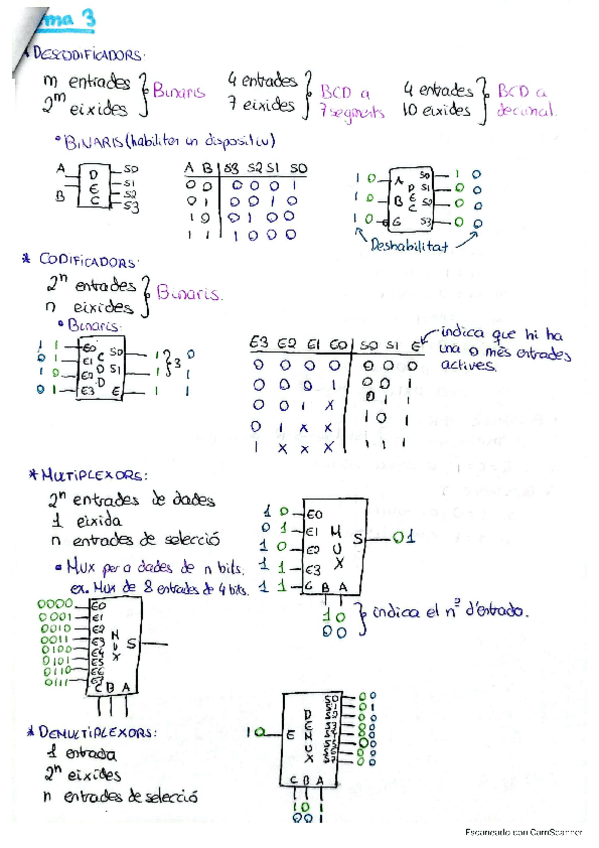 Tema 3
* DESCODIFICADORS:
m entrades
2^m eixides } Binaris
4 entrades
7 eixides } BCD a 7 segments
4 entrades
10 eixides } BCD a decimal.
• BINARIS (habiliten un dispositiu)
A B DEC S0 S1 S2 S3
A B | S3 S2 S1 S0
0 0 | 0 0 0 1
0 1 | 0 0 1 0
1 0 | 0 1 0 0
1 1 | 1 0 0 0
1 0 A S0 1 0
1 0 B DEC S1 0 0
S2 0 0
1 0 G S3 0 0
Deshabilitat
* CODIFICADORS:
2^n entrades
n eixides } Binaris.
• Binaris:
1 1 E0 S0 1 1
0 1 E1 COD S1 1 1 } 3 0
1 0 E2
0 1 E3 E 1 1
E3 E2 E1 E0 | S0 S1 E
0 0 0 0 | 0 0 0
0 0 0 1 | 0 0 1
0 0 1 X | 0 1 1
0 1 X X | 1 0 1
1 X X X | 1 1 1
indica que hi ha
una o més entrades
actives.
* MULTIPLEXORS:
2^n entrades de dades
1 eixida
n entrades de selecció
• Mux per a dades de n bits.
ex. Mux de 8 entrades de 4 bits.
1 0 E0
0 1 E1 MUX S 01
1 0 E2
1 1 E3
1 1 C B A
10
00 } indica el nº d'entrada.
0000 E0
0001 E1
0010 E2
0011 E3 MUX S
0100 E4
0101 E5
0110 E6
0111 E7
C B A
* DEMULTIPLEXORS:
1 entrada
2^n eixides
n entrades de selecció
10 E DEMUX
S0 0 0
S1 0 1
C B A
1 0 1
0 0 1
Escaneado con CamScanner